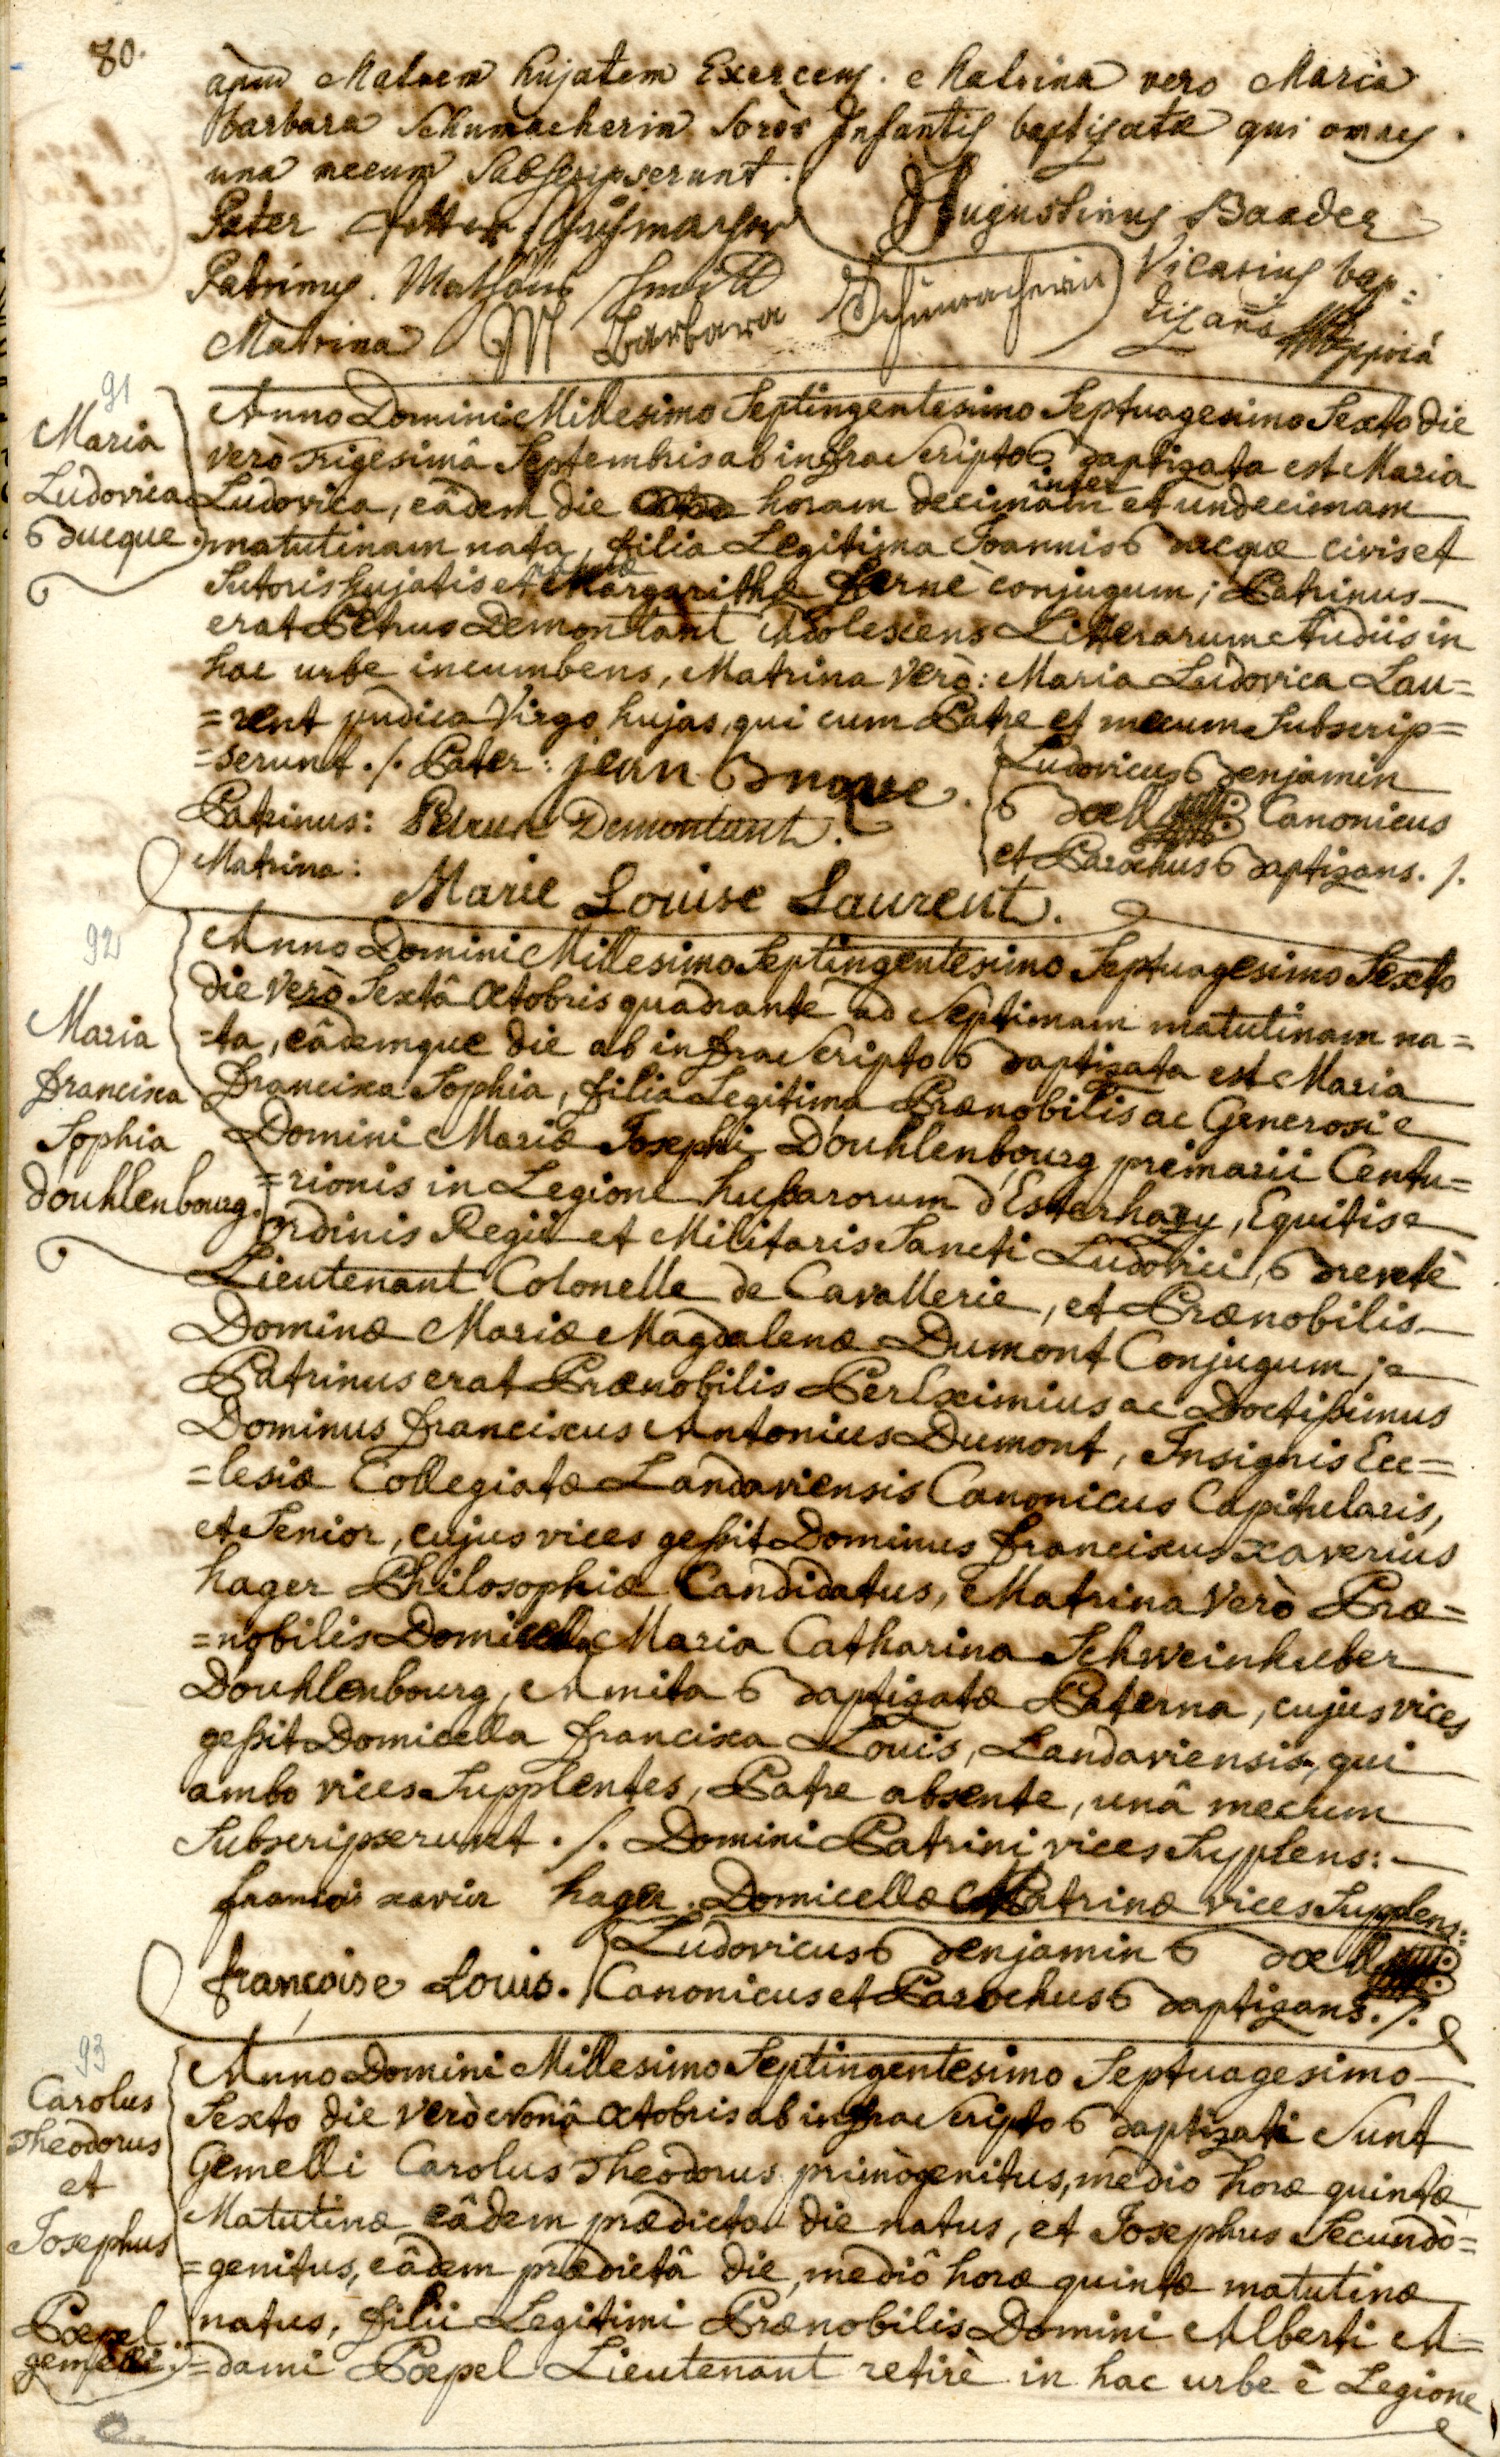 80.
apud Matrem hujatem Exercens. Matrina vero Maria
barbara Schumacherin Soror Infantis baptizatæ qui omnes
una mecum Subscripserunt.
Pater
Augustinus Baader
Patrinus. Mathäus Smitt
Vicarius bap:
Matrina M Barbara Schumacherin
tizans Mppriâ
91
Maria
Ludovica
Bucque.
Anno Domini Millesimo Septingentesimo Septuagesimo Sexto die
verò Trigesimâ Septembris ab infra Scripto Baptizata est Maria
Ludovica, eâdem die inter horam decimam et undecimam
matutinam nata, filia Legitima Joannis Bucque civis et
Sutoris hujatis et Margarithæ fernè conjugum; Patrinus
erat Petrus Demontant Adolescens Litterarum Studiis in
hac urbe incumbens, Matrina Verò: Maria Ludovica Lau=
=rent pudica Virgo hujas, qui cum Patre et mecum Subscrip=
=serunt ./. Pater: jean Bnoque.
Ludovicus Benjamin
Patrinus: Petrus Demontant.
Boell Canonicus
et Parochus Baptizans. /.
Matrina:
Marie Louise Laurent.
92
Maria
francisca
Sophia
douhlenbourg.
Anno Domini Millesimo Septingentesimo Septuagesimo Sexto
die verò Sextâ Octobris quadrante ad Septimam matutinam na=
=ta, eâdemque die ab infra Scripto Baptizata est Maria
francisca Sophia, filia Legitima Prænobilis ac Generosi
Domini Mariæ Josephi D'ouhlenbourg primarii Centu=
=rionis in Legione hußarorum d'Esterhazy, Equitis
Ordinis Regii et Militaris Sancti Ludovici, Brevetè
Lieutenant Colonelle de Cavallerie, et Prænobilis
Dominæ Mariæ Magdalenæ Dumont Conjugum;
Patrinus erat Prænobilis PerEximius ac Doctißimus
Dominus franciscus Antonius Dumont, Insignis Ecc=
=lesiæ Collegiatæ Landaviensis Canonicus Capitularis,
et Senior, cujus vices geßit Dominus franciscus Xaverius
hager Philosophiæ Candidatus, Matrina Verò Præ=
=nobilis Domicella Maria Catharina Schweinhuber
Douhlenbourg, Amita Baptizatæ Paterna, cujus vices
geßit Domicella francisca Louis, Landaviensis, qui
ambo vices Supplentes, Patre absente, unâ mecum
Subscripserunt ./. Domini Patrini vices Supplens:
francois xavier hager. Domicellæ Matrinæ vices Supplens:
Ludovicus Benjamin Boell
françoise Louis.
Canonicus et Parochus Baptizans. /.
93
Carolus
Theodorus
et
Josephus
Poepel
gemelli.
Anno Domini Millesimo Septingentesimo Septuagesimo
Sexto die Verò Nonâ Octobris ab infra Scripto Baptizati Sunt
Gemelli Carolus Theodorus primògenitus, medio horæ quintæ
Matutinæ eâdem prædictâ die natus, et Josephus Secundò=
=genitus, eâdem prædictâ die, mediô horæ quintæ matutinæ
natus, filii Legitimi Prænobilis Domini Alberti A=
=dami Poepel Lieutenant retirè in hac urbe è Legione